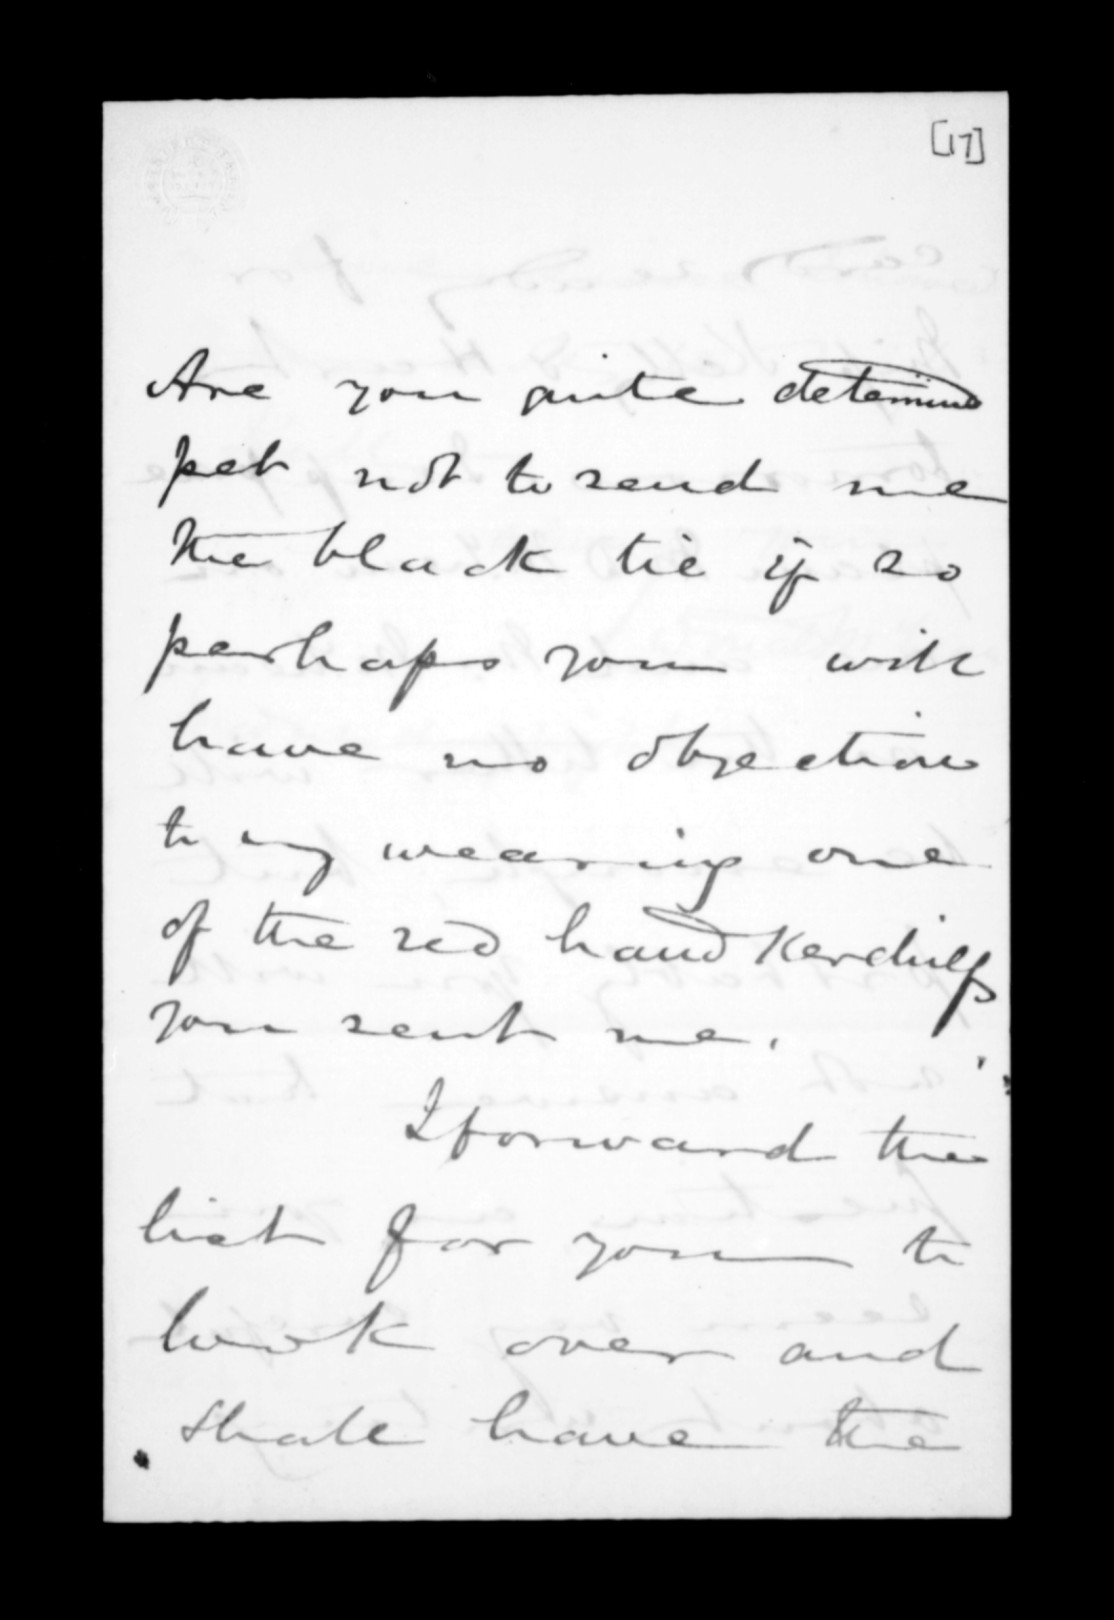 [17]
Are you quite determined
pet not to send me
the black tie if so
perhaps you will
have no objection
to my wearing one
of the red handkerchiefs
you sent me.
I forward the
list for you to
look over and
shall have the